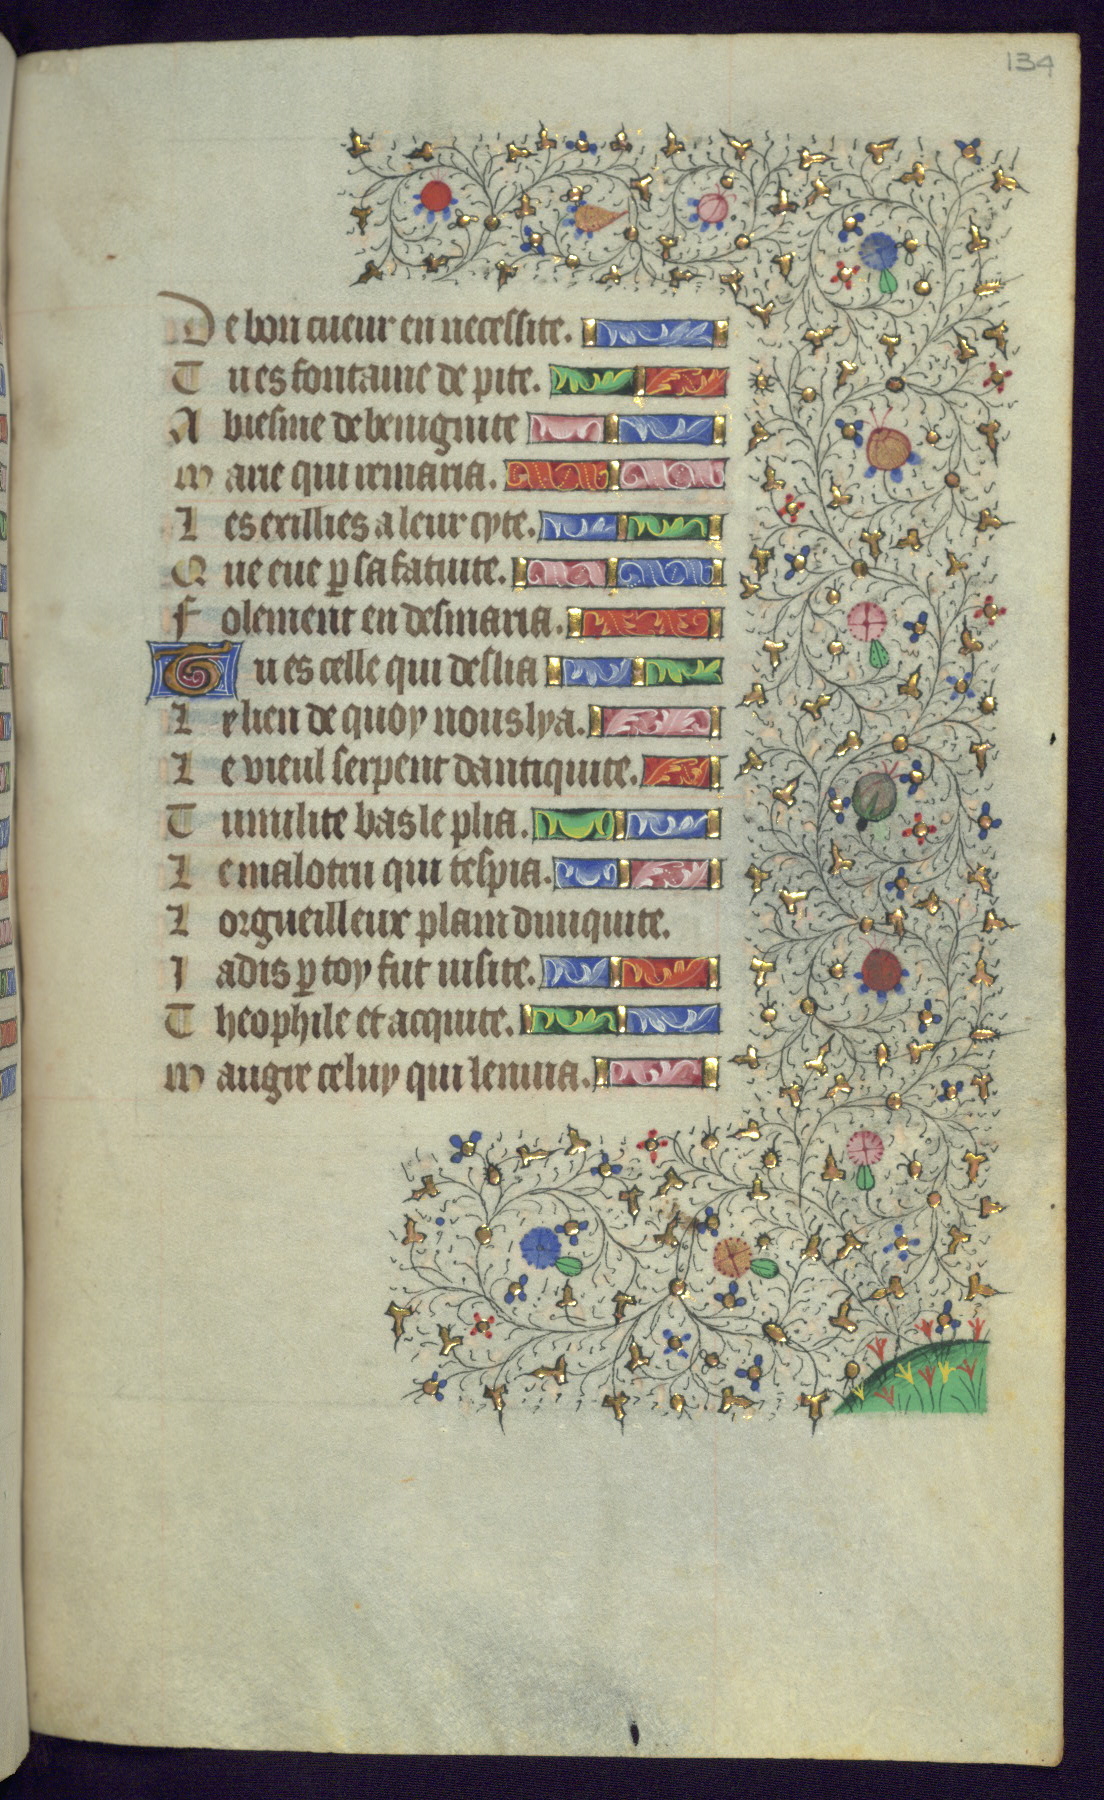 134
De bon cueur en necessite.
Tu es fontaine de pite.
Abiesme de benignite
Marie qui remaria.
Les exillies a leur cyte.
Que eue p sa fatuite.
Folement en desmaria.
Tu es celle qui deslia
Le lien de quoy nous lya.
Le vieul serpent dantiquite.
Tumilite bas le plia.
Le malotru qui tespia.
Lorgueilleux plain diniquite.
Jadis p toy fut uisite.
Theophile et acquite.
Maugre celuy qui lenuia.